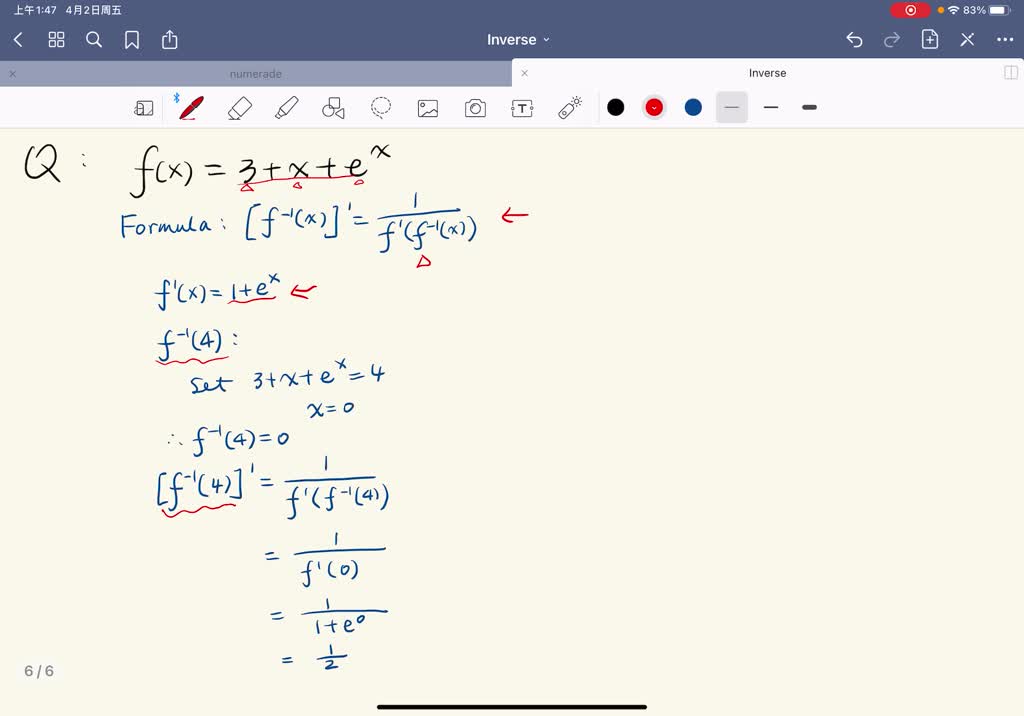 上午1:47 4月2日周五
83%
Inverse
numerade
Inverse
Q: f(x) = 3+x+e^x
Formula: [f⁻¹(x)]' = 1/f'(f⁻¹(x)) ←
f'(x) = 1+e^x ←
f⁻¹(4):
Set 3+x+e^x=4
x=0
∴ f⁻¹(4)=0
[f⁻¹(4)]' = 1/f'(f⁻¹(4))
= 1/f'(0)
= 1/1+e⁰
= 1/2
6/6